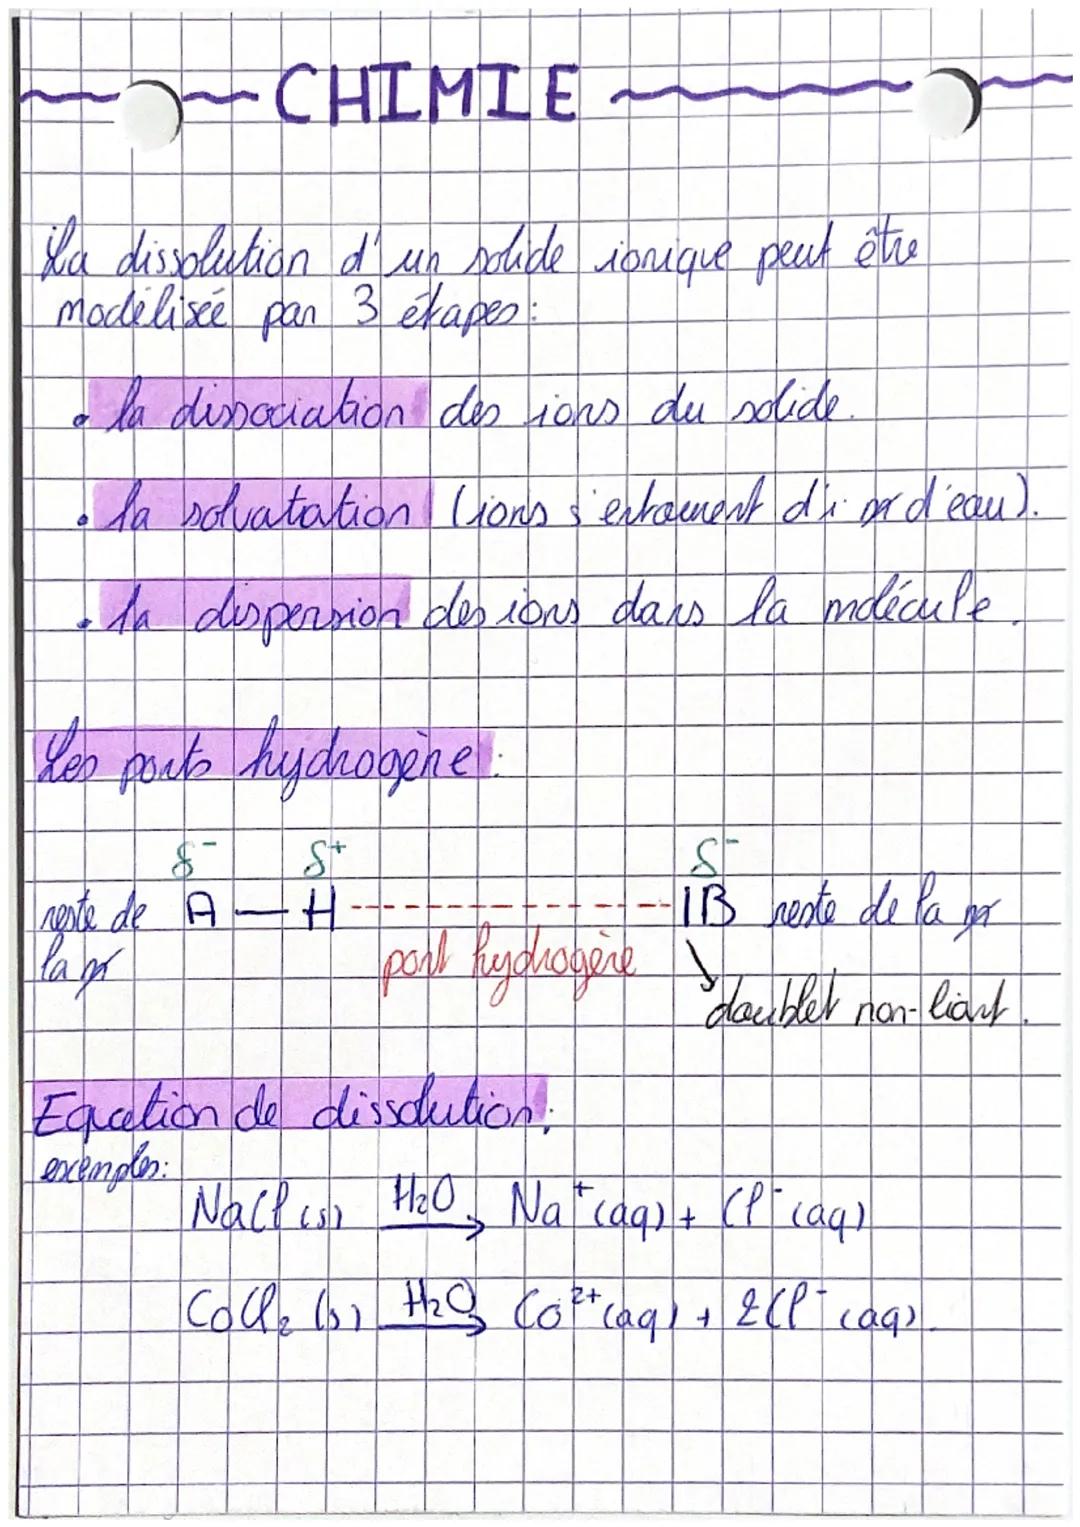 CHIMIE
La dissolution d'un solide ionique peut être
modélisée par 3 étapes:
• la dissociation des ions du solide.
• la solvatation (ions s'entourent d' d'eau).
• la dispersion des ions dans la molécule.
Les ponts hydrogène:
δ- δ+ δ-
reste de A — H ------------- IB reste de la
la pont hydrogène
doublet non-liant.
Equation de dissolution:
exemples:
NaCl (s) H₂O → Na⁺(aq) + Cl⁻(aq)
CoCl₂ (s) H₂O → Co²⁺(aq) + 2Cl⁻(aq).